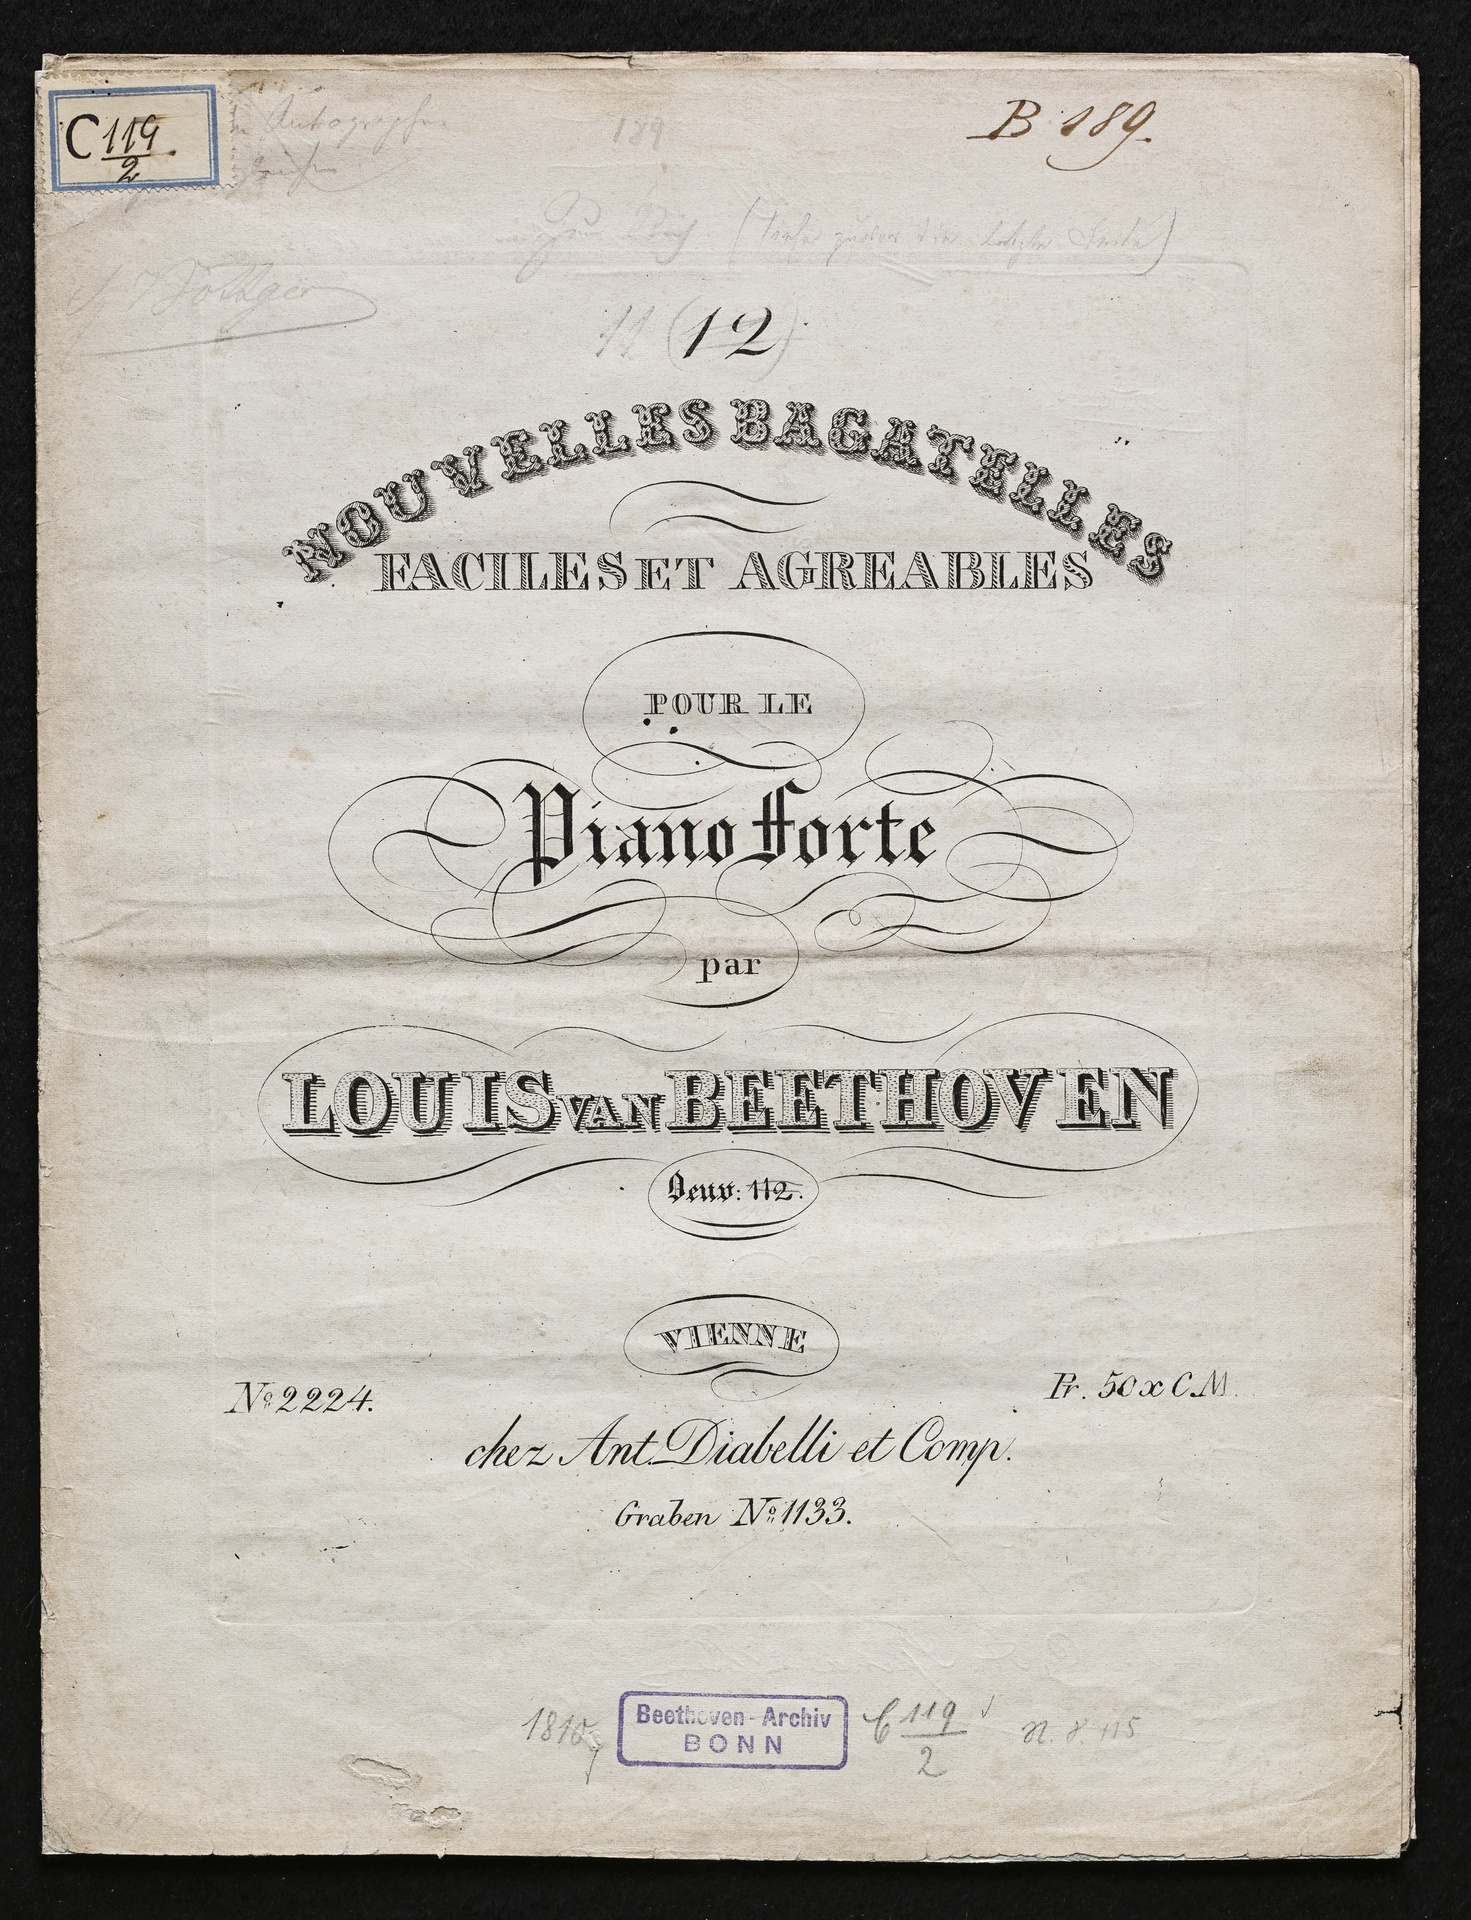 C 119/2.
Autographe
189
B 189.
Böttger
11 (12)
NOUVELLES BAGATELLES
FACILES ET AGREABLES
POUR LE
Piano Forte
par
LOUIS VAN BEETHOVEN
Oeuv: 112.
VIENNE
No 2224.
Pr. 50 x C.M.
chez Ant. Diabelli et Comp.
Graben No 1133.
Beethoven-Archiv
BONN
C 119/2